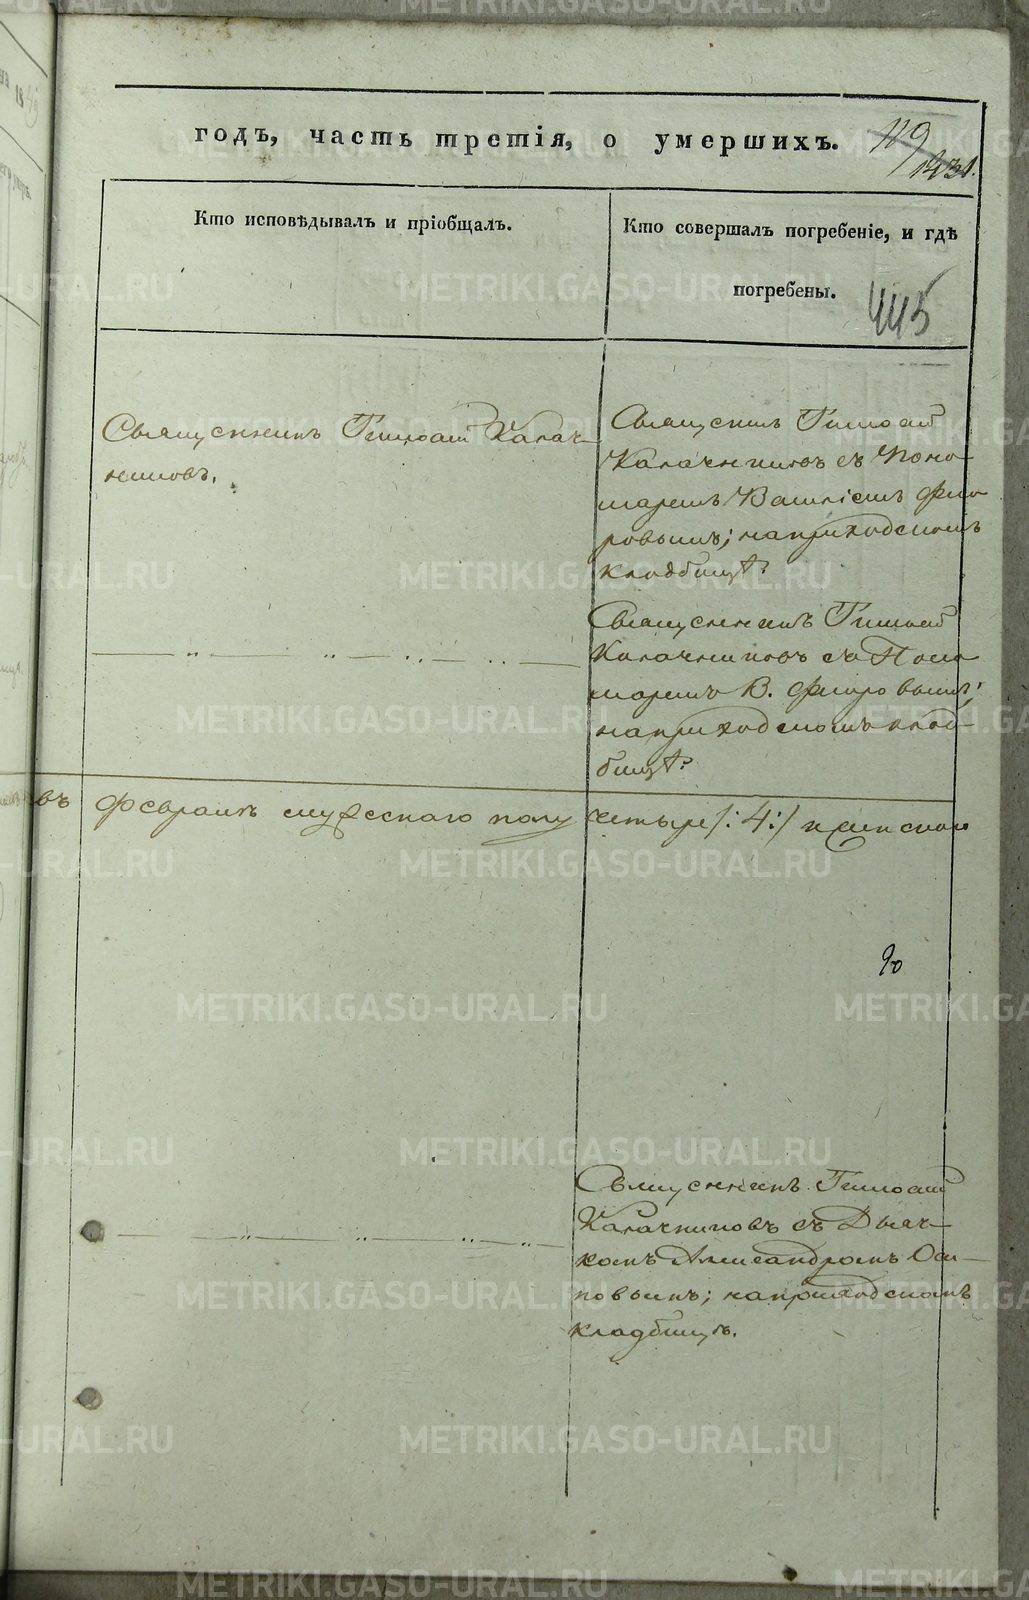 годъ, часть третія, о умершихъ.
119
1431.
Кто исповѣдывалъ и пріобщалъ.
Кто совершалъ погребеніе, и гдѣ
погребены.
445
Священникъ Тимоѳей Калач-
никовъ.
Священникъ Тимоѳей
Калачниковъ съ Поно-
маремъ Василіемъ Фло
ровымъ; на приходскомъ
кладбищѣ.
Священникъ Тимоѳей
Калачниковъ съ Поно
маремъ В. Флоровымъ;
на приходскомъ клад-
бищѣ.
въ Февралѣ мужескаго полу четыре /:4:/ женскаго
90
Священникъ Тимоѳей
Калачниковъ съ Дьяч-
комъ Александромъ Оси-
повымъ; на приходскомъ
кладбищѣ.
METRIKI.GASO-URAL.RU